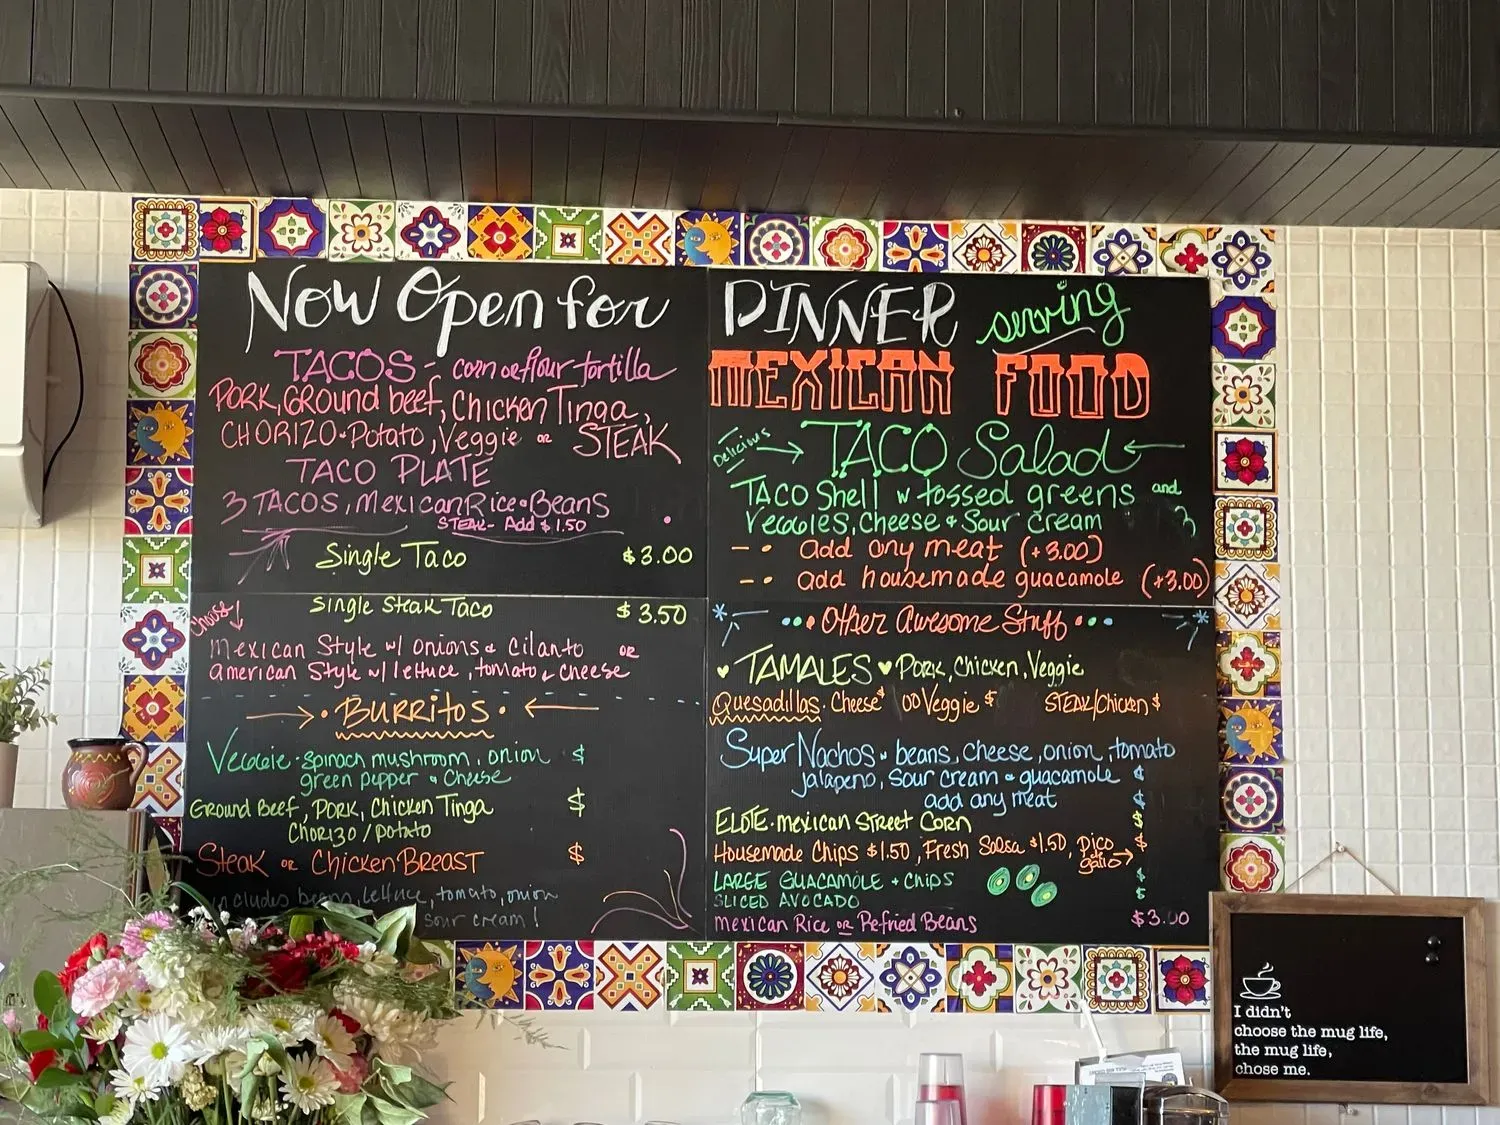 Now Open for
TACOS - corn or flour tortilla
PORK, GROund beef, Chicken Tinga,
CHORIZO•Potato, Veggie or STEAK
TACO PLATE
3 TACOS, Mexican Rice•Beans
STEAK- Add $1.50
Single Taco $3.00
Single Steak Taco $3.50
Choose
Mexican Style w/ onions & Cilanto or
American Style w/ lettuce, tomato & cheese
BURRitos
Veggie • spinach mushroom, onion $
green pepper & cheese
Ground Beef, PORK, Chicken Tinga $
Chorizo/potato
Steak or Chicken BREAST $
includes beans, lettuce, tomato, onion
sour cream!
DINNER serving
MEXICAN FOOD
Delicious TACO Salad
TACO Shell w tossed greens and
Veggies, Cheese & Sour cream
-- add any meat (+3.00)
-- add housemade guacamole (+3.00)
Other Awesome Stuff
TAMALES ♥ Pork, Chicken, Veggie
Quesadillas. Cheese $ 00 Veggie $ STEAK/Chicken $
Super Nachos • beans, cheese, onion, tomato
jalapeno, sour cream & guacamole $
add any meat $
ELOTE • mexican STREET CORN $
Housemade Chips $1.50, Fresh Salsa $1.50, Pico $
gallo
LARGE GUACAMOLE + Chips $
SLICED AVOCADO $
Mexican Rice or Refried Beans $3.00
I didn't
choose the mug life,
the mug life,
chose me.